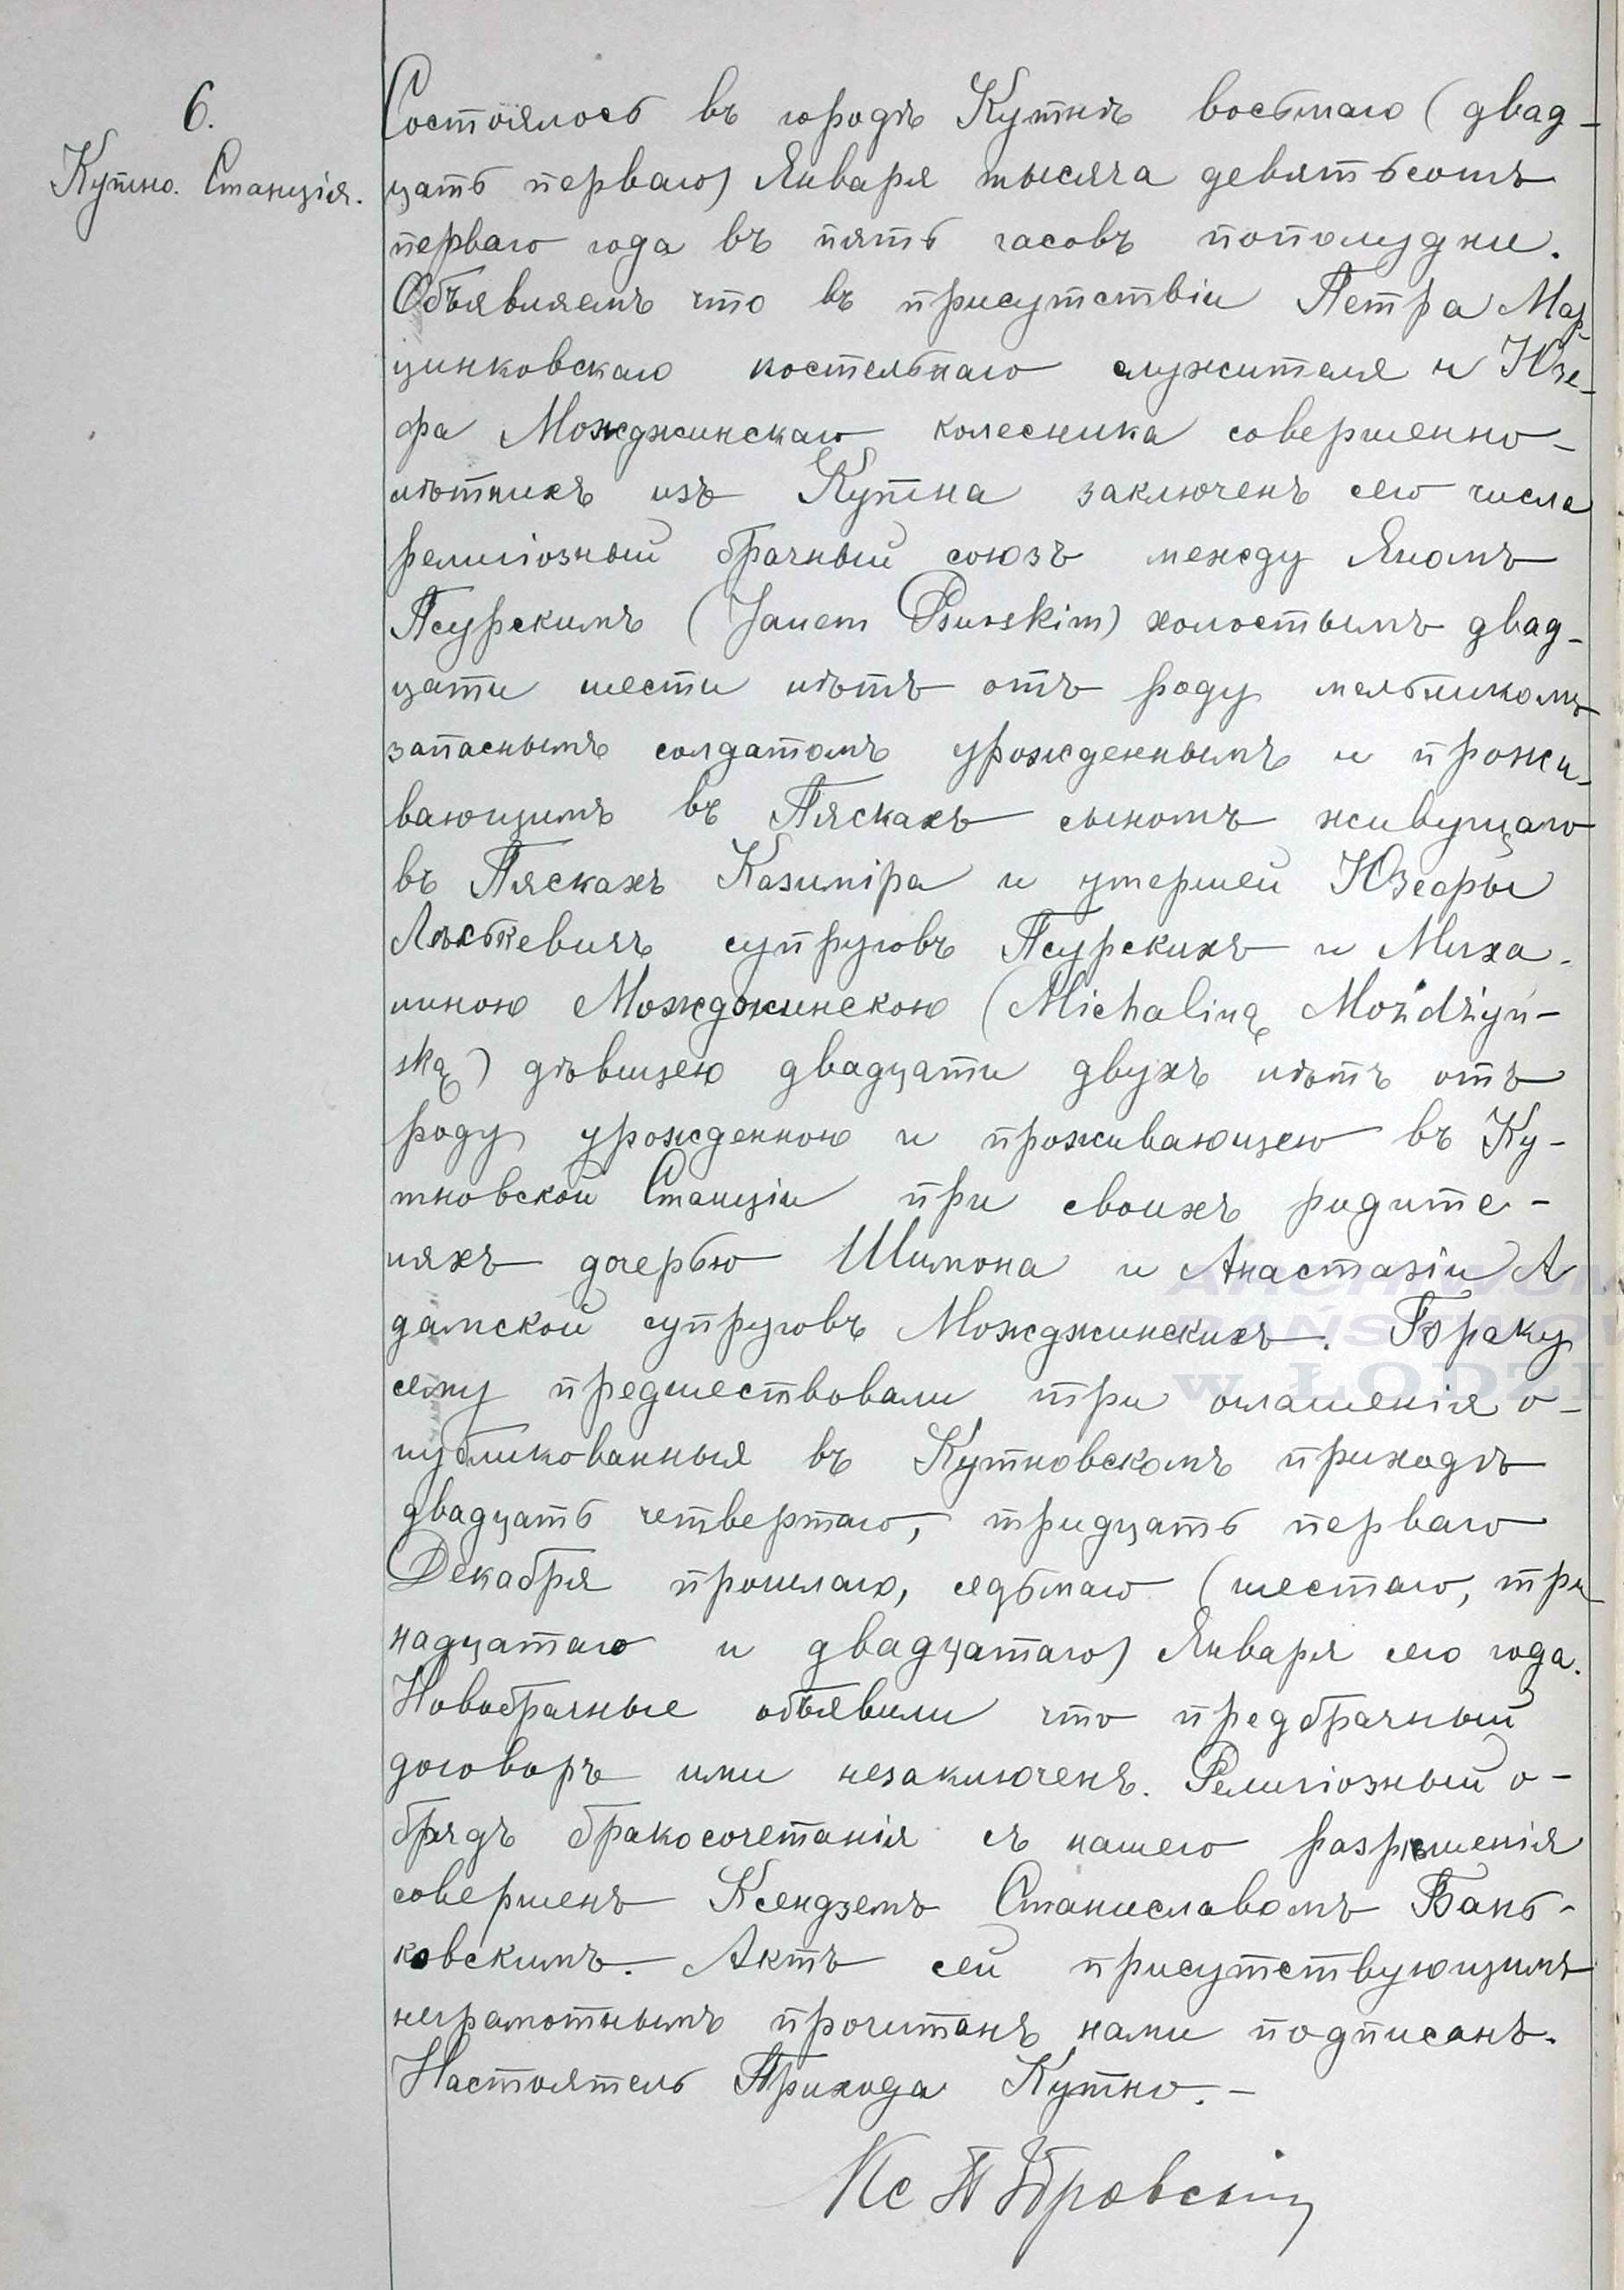 6.
Кутно. Станція.
Состоялось въ городѣ Кутнѣ восьмаго (двад-
цать перваго) Января тысяча девятьсотъ
перваго года въ пять часовъ пополудни.
Объявляемъ что въ присутствіи Петра Мар-
цинковскаго костельнаго служителя и Юзе-
фа Можджинскаго колесника совершенно-
лѣтнихъ изъ Кутна заключенъ сего числа
религіозный брачный союзъ между Яномъ
Псурскимъ (Janem Psurskim) холостымъ двад-
цати шести лѣтъ отъ роду мельникомъ
запаснымъ солдатомъ урожденнымъ и прожи-
вающимъ въ Пяскахъ сыномъ живущаго
въ Пяскахъ Казиміра и умершей Юзефы
супруговъ Псурскихъ и Миха-
линою Можджинскою (Michaliną Możdżyń-
ską) дѣвицею двадцати двухъ лѣтъ отъ
роду урожденною и проживающею въ Ку-
тновской Станціи при своихъ родите-
ляхъ дочерью Шимона и Анастазіи А
дамской супруговъ Можджинскихъ. Браку
сему предшествовали три оглашенія о-
публикованныя въ Кутновскомъ приходѣ
двадцать четвертаго, тридцать перваго
Декабря прошлаго, седьмаго (шестаго, три
надцатаго и двадцатаго) Января сего года.
Новобрачные объявили что предбрачный
договоръ ими незаключенъ. Религіозный о-
брядъ бракосочетанія съ нашего разрѣшенія
совершенъ Ксендземъ Станиславомъ Бань-
ковскимъ. Актъ сей присутствующимъ
неграмотнымъ прочитанъ нами подписанъ.
Настоятель Прихода Кутно.-
Кс П
ARCHIWUM
PAŃSTWOW
w ŁODZI